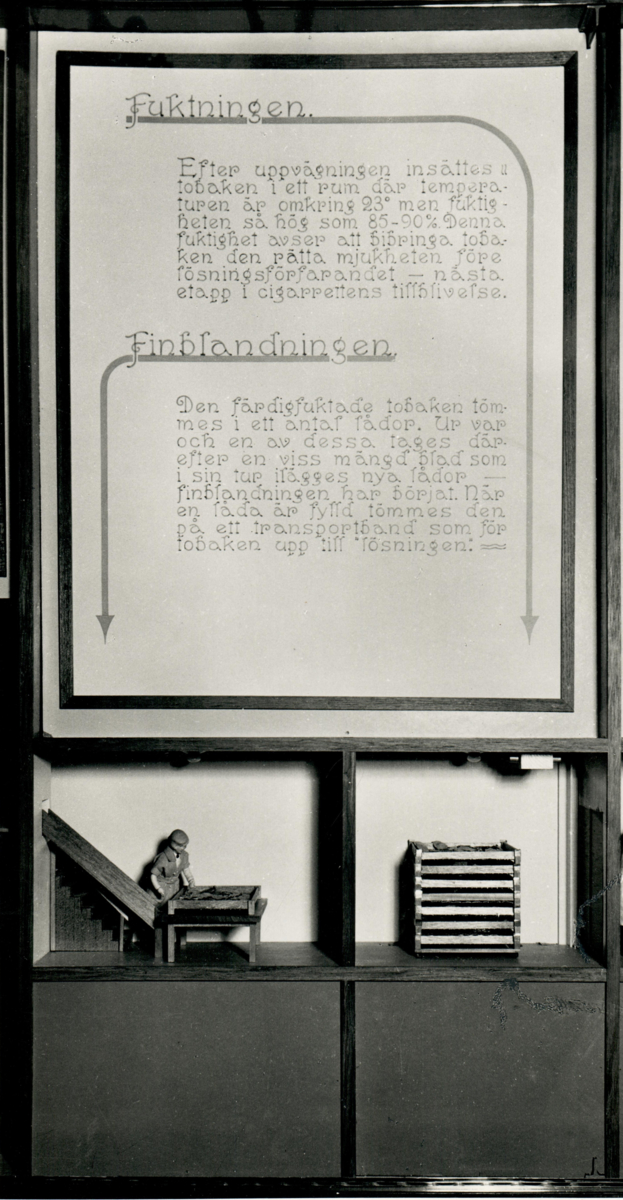 Fuktningen.
Efter uppvägningen insättes
tobaken i ett rum där tempera-
turen är omkring 23° men fuktig-
heten så hög som 85-90%. Denna
fuktighet avser att bibringa toba-
ken den rätta mjukheten före
lösningsförfarandet — nästa
etapp i cigarrettens tillblivelse.
Finblandningen.
Den färdigfuktade tobaken töm-
mes i ett antal lådor. Ur var
och en av dessa tages där-
efter en viss mängd blad som
i sin tur ilägges nya lådor —
finblandningen har börjat. När
en låda är fylld tömmes den
på ett transportband som för
tobaken upp till "lösningen".